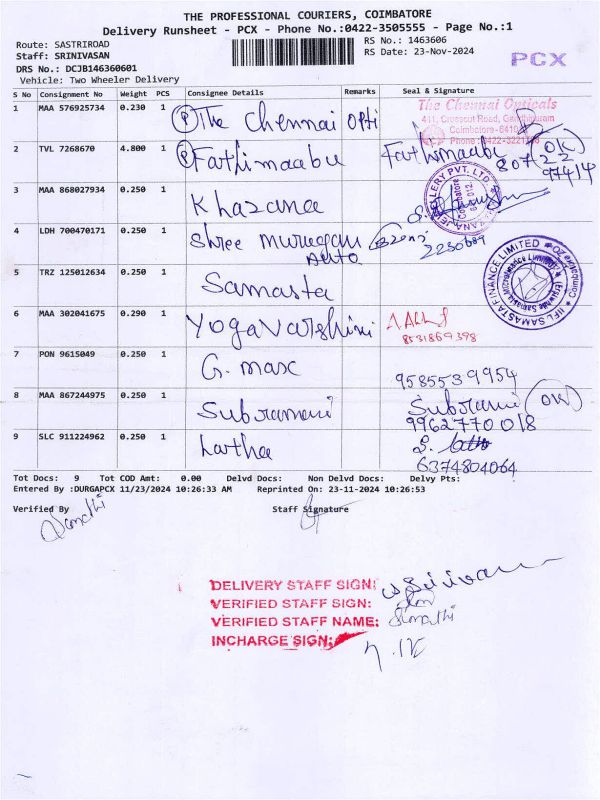 THE PROFESSIONAL COURIERS, COIMBATORE
Delivery Runsheet - PCX - Phone No.:0422-3505555 - Page No.:1
Route: SASTRIROAD
RS No.: 1463606
Staff: SRINIVASAN
RS Date: 23-Nov-2024
PCX
DRS No.: DCJB146360601
Vehicle: Two Wheeler Delivery
S No Consignment No Weight PCS Consignee Details Remarks Seal & Signature
1 MAA 576925734 0.230 1 (P) The Chennai Opti
The Chennai Opticals
411, Crosscut Road, Gandhipuram
Coimbatore-6410
Phone: 0422-3221
2 TVL 7268670 4.800 1 (P) Fathimaabu Fathimaabu OK
80722
97414
3 MAA 868027934 0.250 1 Khazana
4 LDH 700470171 0.250 1 Shree Murugan
Auto
2230609
5 TRZ 125012634 0.250 1 Samasta
IIFL SAMASTA FINANCE LIMITED
6 MAA 302041675 0.290 1 Yogavarshini
8531869398
7 PON 9615049 0.250 1 G. max
9585539954
8 MAA 867244975 0.250 1 Subramani Subrami (OK)
9962770018
9 SLC 911224962 0.250 1 Latha S. Latha
6374804064
Tot Docs: 9 Tot COD Amt: 0.00 Delvd Docs: Non Delvd Docs: Delvy Pts:
Entered By :DURGAPCX 11/23/2024 10:26:33 AM Reprinted On: 23-11-2024 10:26:53
Verified By Staff Signature
Sumathi
DELIVERY STAFF SIGN: Srinivasan
VERIFIED STAFF SIGN:
VERIFIED STAFF NAME: Sumathi
INCHARGE SIGN: